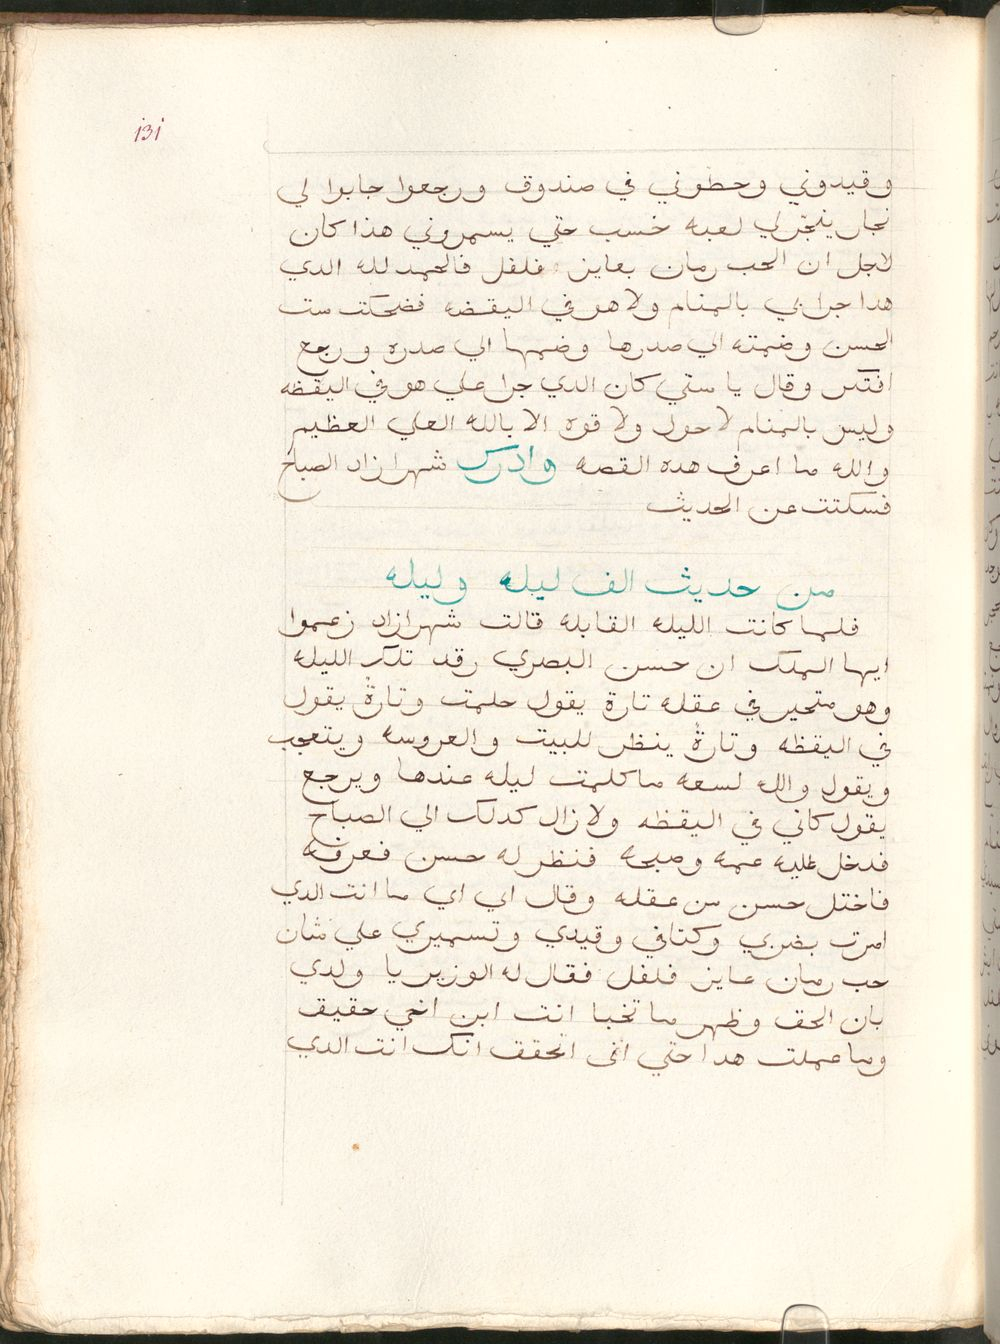 131
وقيدوني وحطوني في صندوق ورجعوا جابوا لي
نجار ينجر لي لعبه خسب حتي يسمروني هذا كان
لاجل ان الحب رمان بعايز فلفل فالحمد لله الدي
هدا جرا بي بالمنام ولا هو في اليقضه فضحكت ست
الحسن وضمته الي صدرها وضمها الي صدره ورجع
افتكر وقال يا ستي كان الدي جرا علي هو في اليقظه
وليس بالمنام لا حول ولا قوه الا بالله العلي العظيم
والله ما اعرف هده القصه وادرك شهرازاد الصباح
فسكتت عن الحديث
من حديث الف ليله وليله
فلما كانت الليله القابله قالت شهرازاد زعموا
ايها الملك ان حسن البصري رقد تلك الليله
وهو متحير في عقله تارة يقول حلمت وتارة يقول
في اليقظه وتارة ينظر للبيت والعروسه ويتعجب
ويقول والله لسعه ما كلمت ليله عندها ويرجع
يقول كاني في اليقظه ولا زال كدلك الي الصباح
فدخل عليه عمه وصبحه فنظر له حسن فعرفه
فاختل حسن من عقله وقال اي اي ما انت الدي
امرت بضربي وكتافي وقيدي وتسميري علي شان
حب رمان عايز فلفل فقال له الوزير يا ولدي
بان الحق وظهر ما تخبا انت ابن اخي حقيق
وما عملت هدا حتي اني اتحقق انك انت الدي